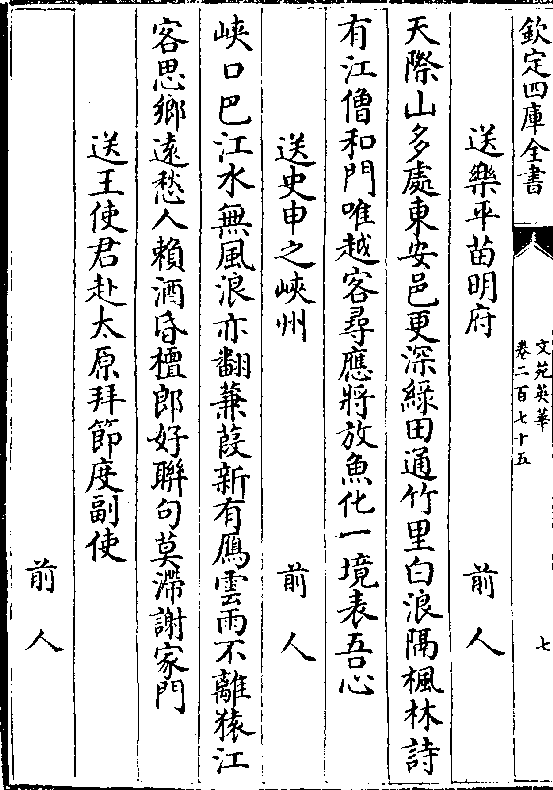 欽定四庫全書
文苑英華
卷二百七十五
七
送樂平苗明府 前人
天際山多處東安邑更深綠田通竹里白浪隔楓林詩
有江僧和門唯越客尋應將放魚化一境表吾心
送史申之峽州 前人
峽口巴江水無風浪亦翻蒹葭新有鴈雲雨不離猿江
客思鄉遠愁人賴酒昏檀郎好聯句莫滯謝家門
送王使君赴太原拜節度副使
前人